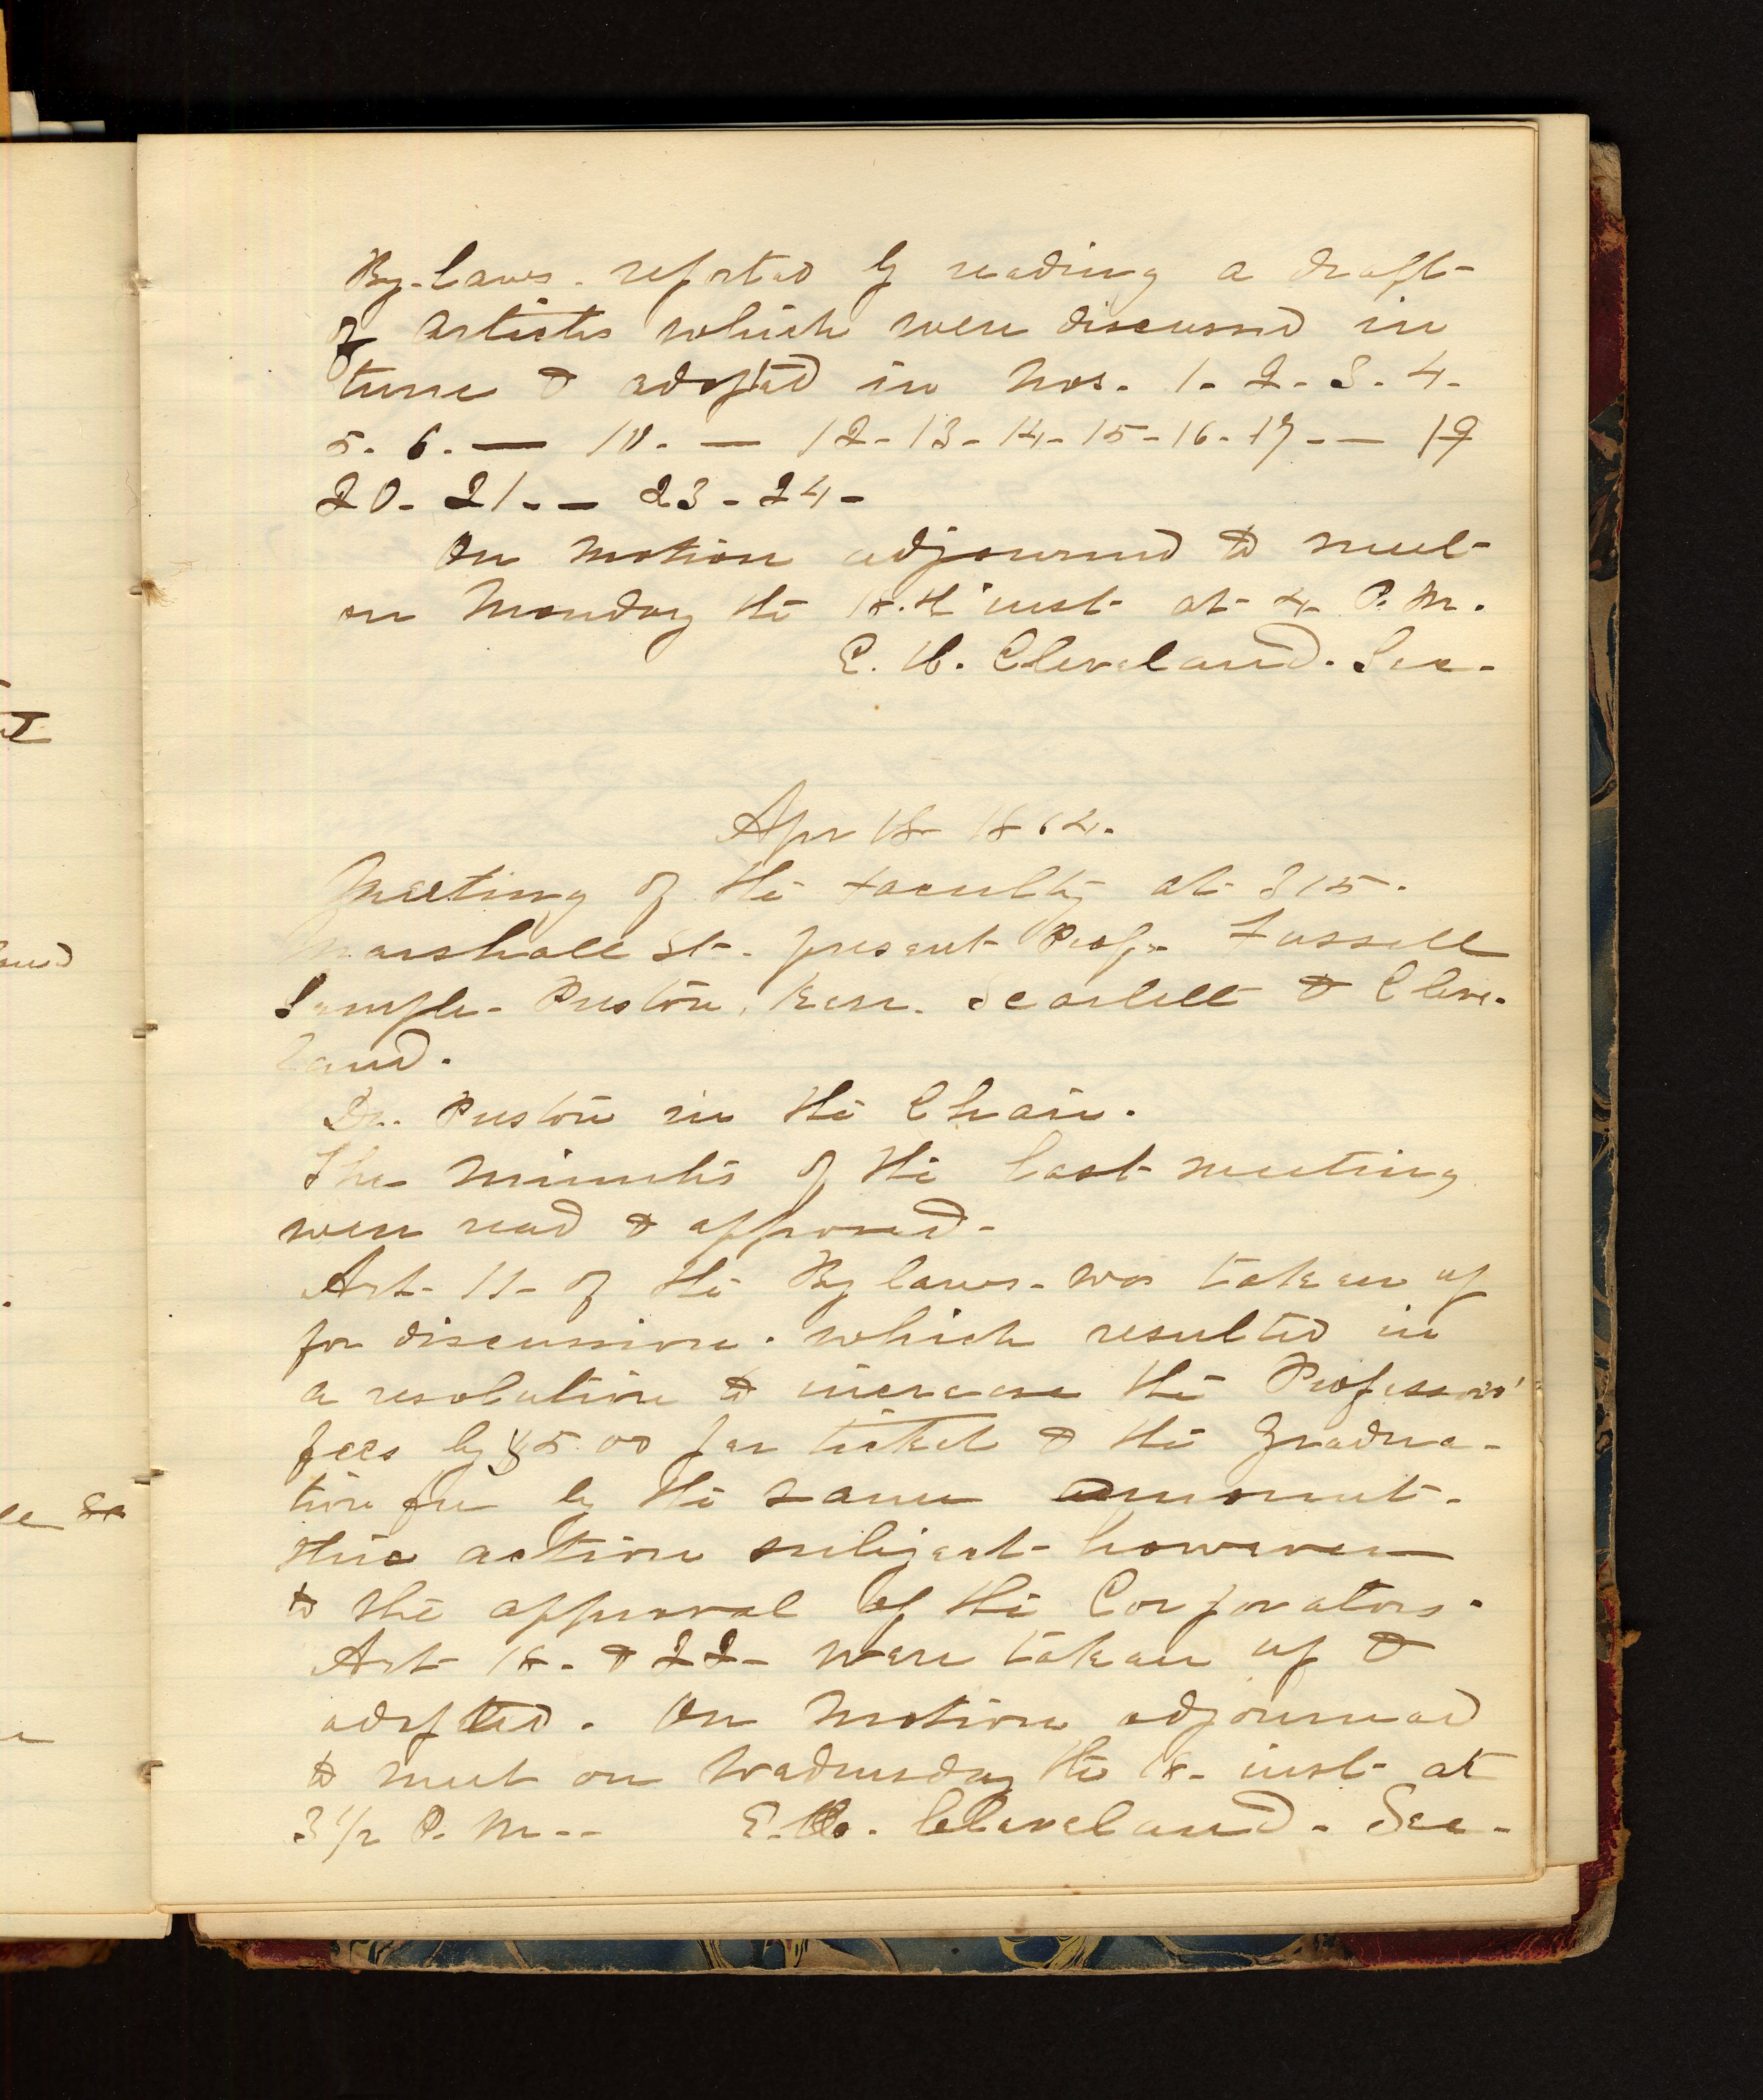 By-laws. reported by reading a draft
of articles which were discussed in
turn & adopted in Nos. 1-2-3-4-
5. 6. — 10. — 12-13-14-15-16-17-- 19
20- 21-- 23-24-
On motion adjourned to meet
on Monday the 18.th inst at 4 P.M.
E. H. Cleveland. Sec-
Apr 18 1864.
Meeting of the faculty at 315.
Marshall St. present Profs. Fussell
Sample- Preston, Kerr. Scarlett & Cleve-
land.
Dr. Preston in the Chair.
The Minutes of the last meeting
were read & approved-
Art- 11- of the By laws- was taken up
for discussion. which resulted in
a resolution to increase the Professors'
fees by $5.00 per ticket & the Gradua-
tion fee by the same amount.
this action subject however
to the approval of the Corporators.
Art 18. & 22- were taken up &
adopted. On Motion adjourned
to meet on Wednesday the inst- at
3 1/2 P. M-- E. H. Cleveland. Sec-
and